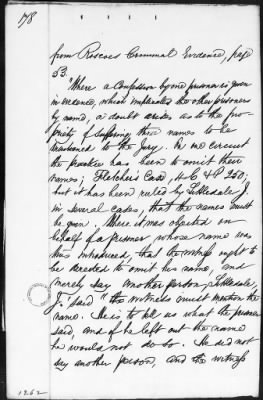 178
from Roscoes Criminal Evidence, page
53.
"Where a Confession by one prisoner is given
in evidence, which implicates the other prisoners
by name, a doubt arises as to the pro-
priety of suffering these names to be
mentioned to the jury. On one circuit
the practice has been to omit their
names; Fletcher's Case, 4 C & P 250;
but it has been ruled by Littledale J.
in several cases, that the names must
be given. Where it was objected on
behalf of a prisoner whose name was
thus introduced, that the witness ought to
be directed to omit his name, and
merely say another person, Littledale,
J. said "the witness must mention the
name. He is to tell us what the prisoner
said, and if he left out the name
he would not do so. He did not
say another person, and the witness
1262